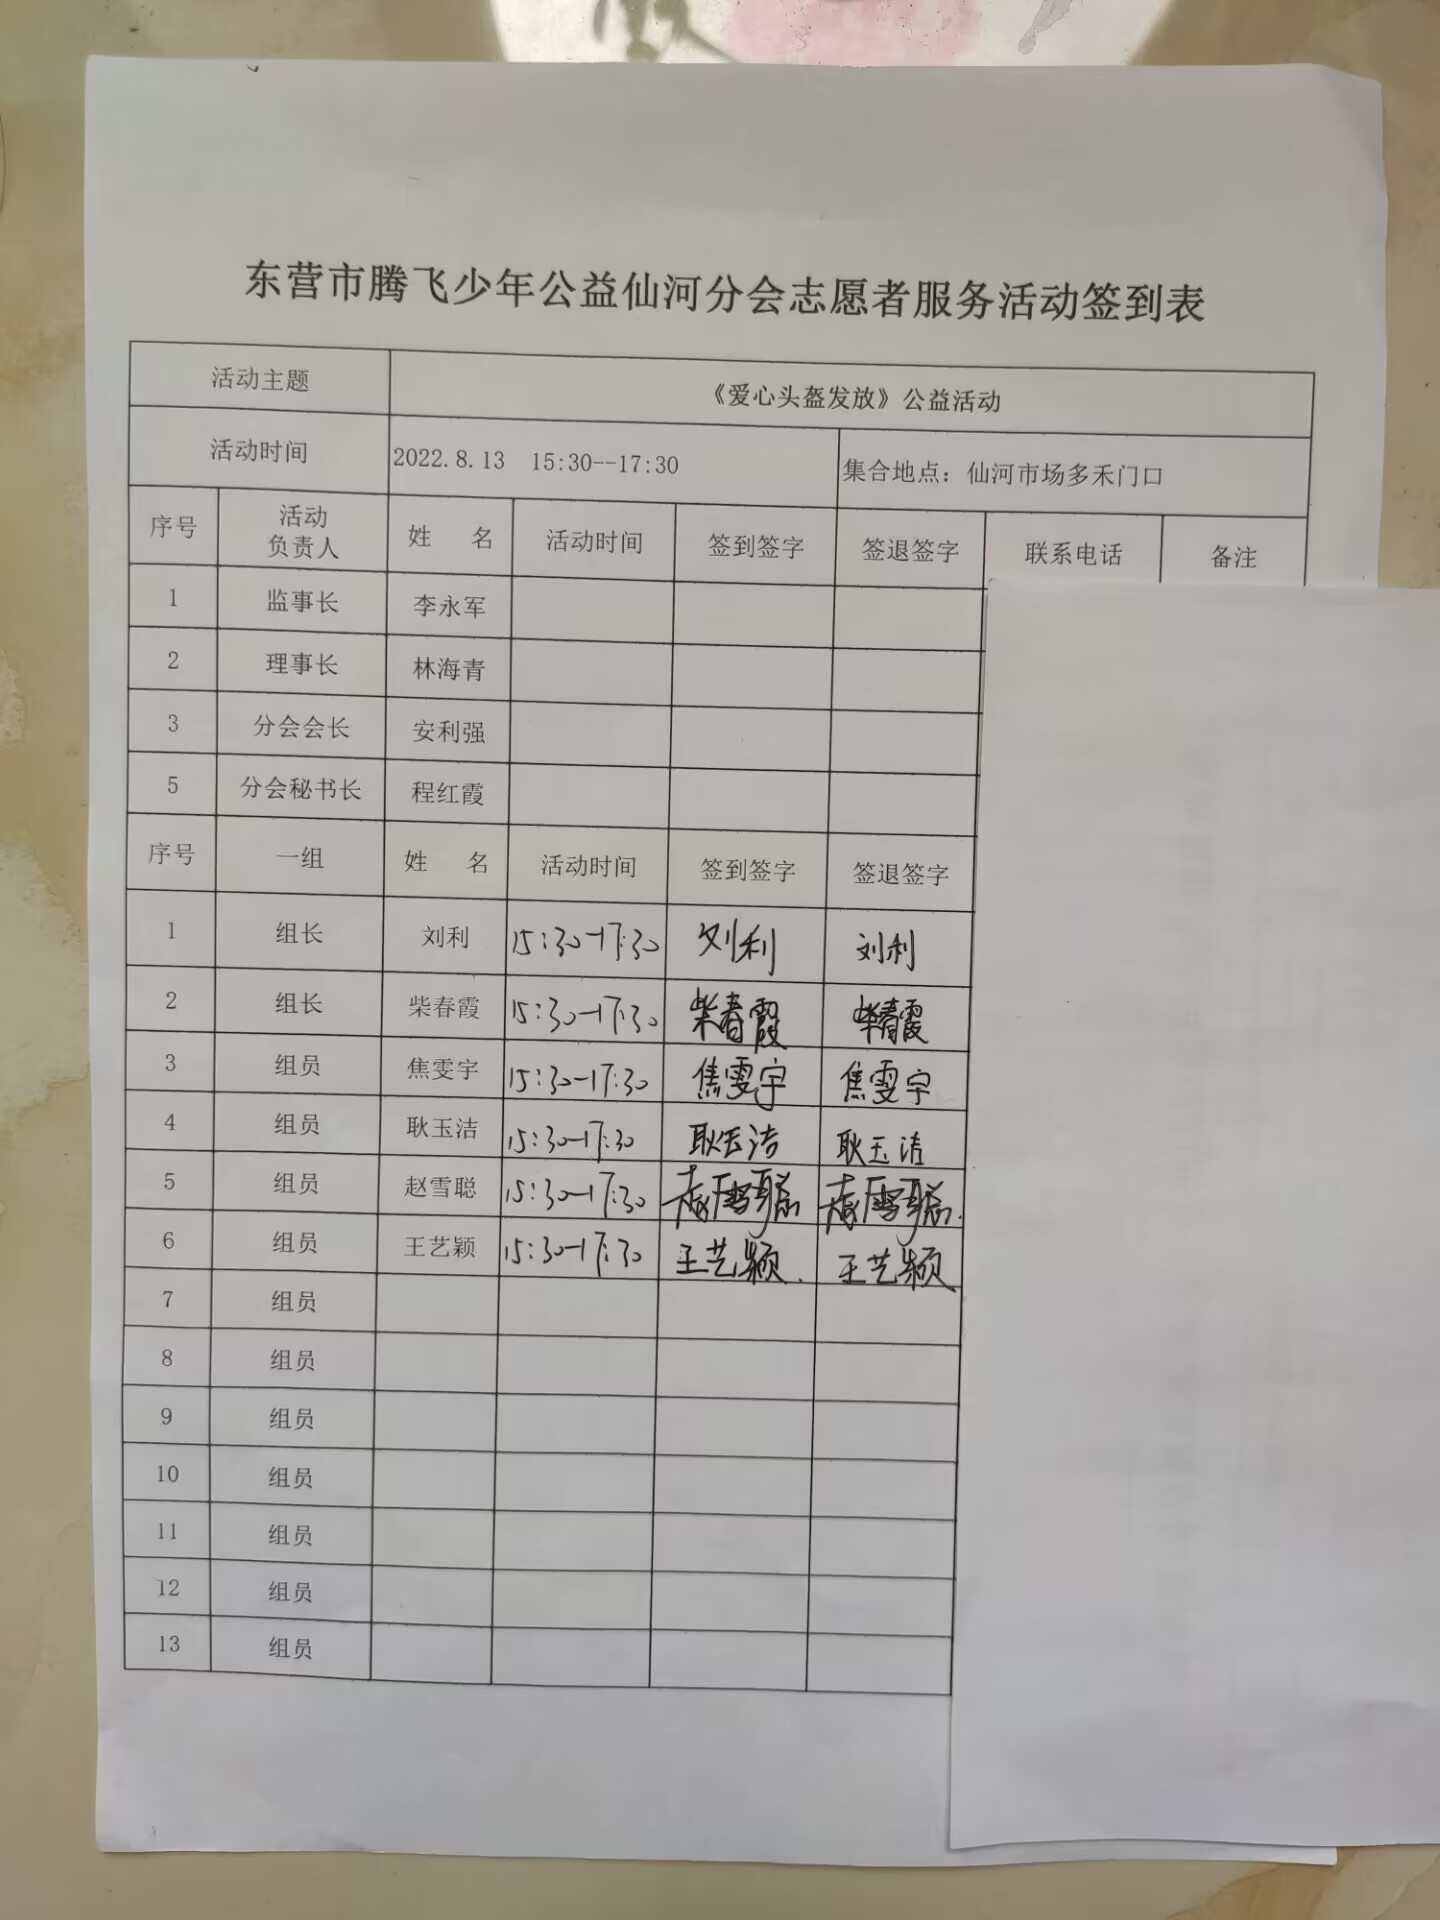 东营市腾飞少年公益仙河分会志愿者服务活动签到表
活动主题 《爱心头盔发放》公益活动
活动时间 2022.8.13 15:30--17:30 集合地点：仙河市场多禾门口
序号 活动负责人 姓 名 活动时间 签到签字 签退签字 联系电话 备注
1 监事长 李永军
2 理事长 林海青
3 分会会长 安利强
5 分会秘书长 程红霞
序号 一组 姓 名 活动时间 签到签字 签退签字
1 组长 刘利 15:30-17:30 刘利 刘利
2 组长 柴春霞 15:30-17:30 柴春霞 柴春霞
3 组员 焦雯宇 15:30-17:30 焦雯宇 焦雯宇
4 组员 耿玉洁 15:30-17:30 耿玉洁 耿玉洁
5 组员 赵雪聪 15:30-17:30 赵雪聪 赵雪聪.
6 组员 王艺颖 15:30-17:30 王艺颖. 王艺颖
7 组员
8 组员
9 组员
10 组员
11 组员
12 组员
13 组员